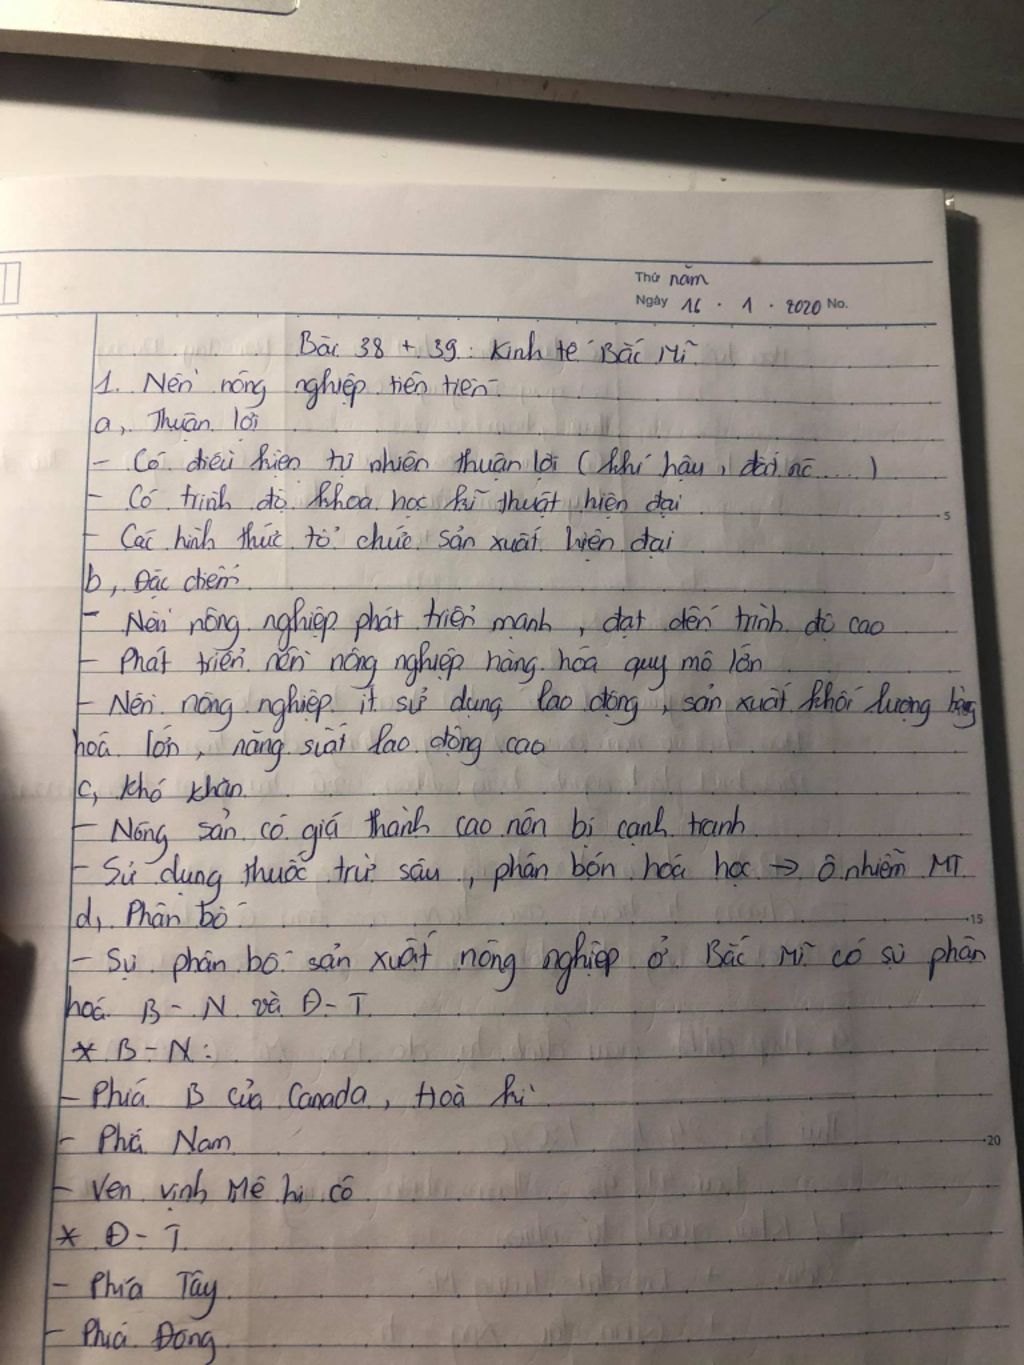 Thứ năm
Ngày 16 . 1 . 2020 No.
Bài 38 + 39 : Kinh tế Bắc Mĩ
1. Nền nông nghiệp tiên tiến
a, Thuận lợi
- Có điều kiện tự nhiên thuận lợi ( khí hậu , đất, nc .... )
- Có trình độ khoa học kĩ thuật hiện đại
- Các hình thức tổ chức sản xuất hiện đại
5
b, Đặc điểm
- Nền nông nghiệp phát triển mạnh , đạt đến trình độ cao
- Phát triển nền nông nghiệp hàng hóa quy mô lớn
- Nền nông nghiệp ít sử dụng lao động , sản xuất khối lượng hàng
hoá lớn , năng suất lao động cao
c, Khó khăn
- Nông sản có giá thành cao nên bị cạnh tranh
- Sử dụng thuốc trừ sâu , phân bón hoá học → ô nhiễm MT
d, Phân bố
15
- Sự phân bố sản xuất nông nghiệp ở Bắc Mĩ có sự phân
hoá B - N và Đ - T
* B - N :
- Phía B của Canada , Hoà kì
- Phía Nam
20
- Ven vịnh Mê hi cô
* Đ - T
- Phía Tây
- Phía Đông